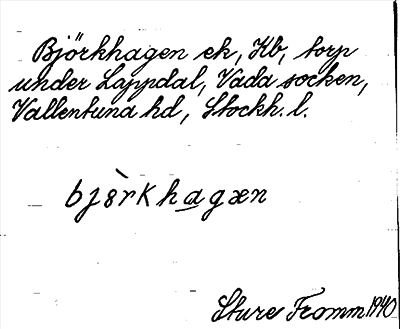 Björkhagen ek, Hb, torp
under Lappdal, Vada socken,
Vallentuna hd, Stockh. l.
bjòrkhagæn
Sture Fromm 1940